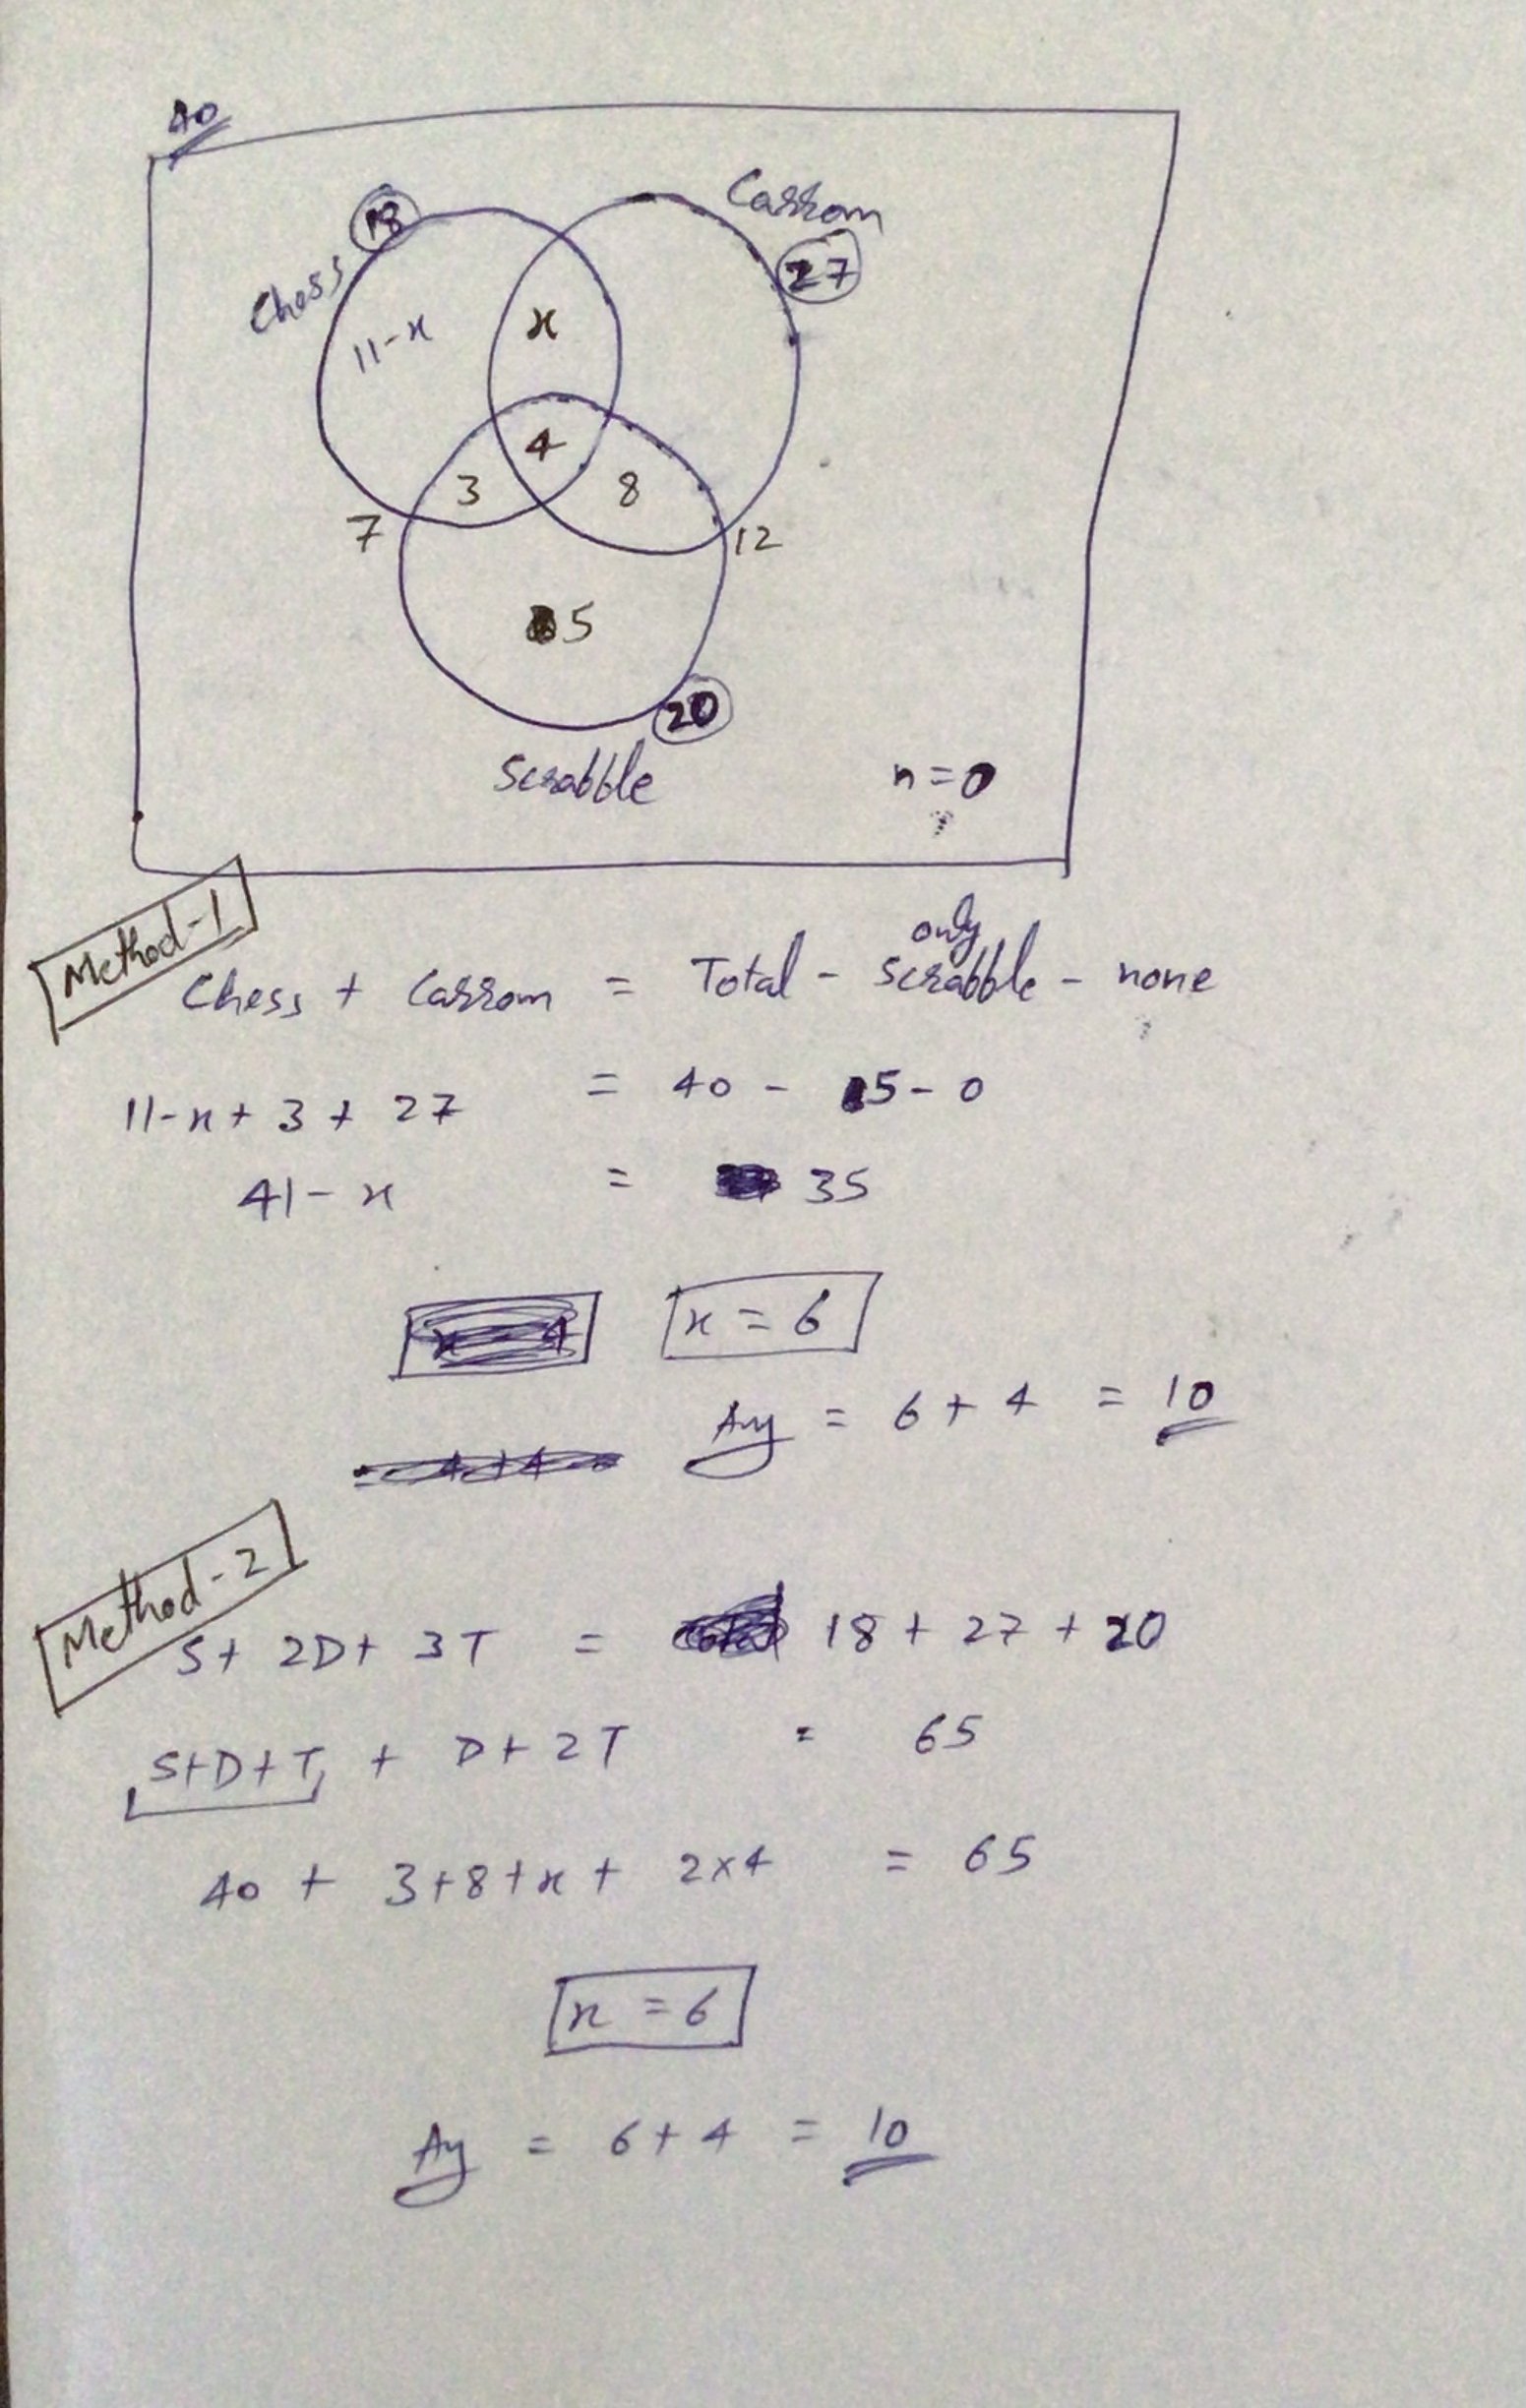 40
18
Carrom
27
Chess
11-x
x
4
3
8
7
12
5
20
Scrabble
n=0
Method-1
only
Chess + Carrom = Total - Scrabble - none
11-x+3+27 = 40 - 5-0
41-x = 35
x=6
= 6+4 = 10
Method-2
S+2D+3T = 18+27+20
S+D+T + D+2T = 65
40 + 3+8+x+ 2x4 = 65
x=6
= 6+4 = 10